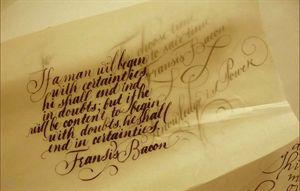 If a man will begin
with certainties,
he shall end ind
in doubts; but if he
will be content to begin
with doubts, he shall
end in certainties.
Fransis Bacon
choose time
to save time
Fransis Bacon
Knowledge is Power